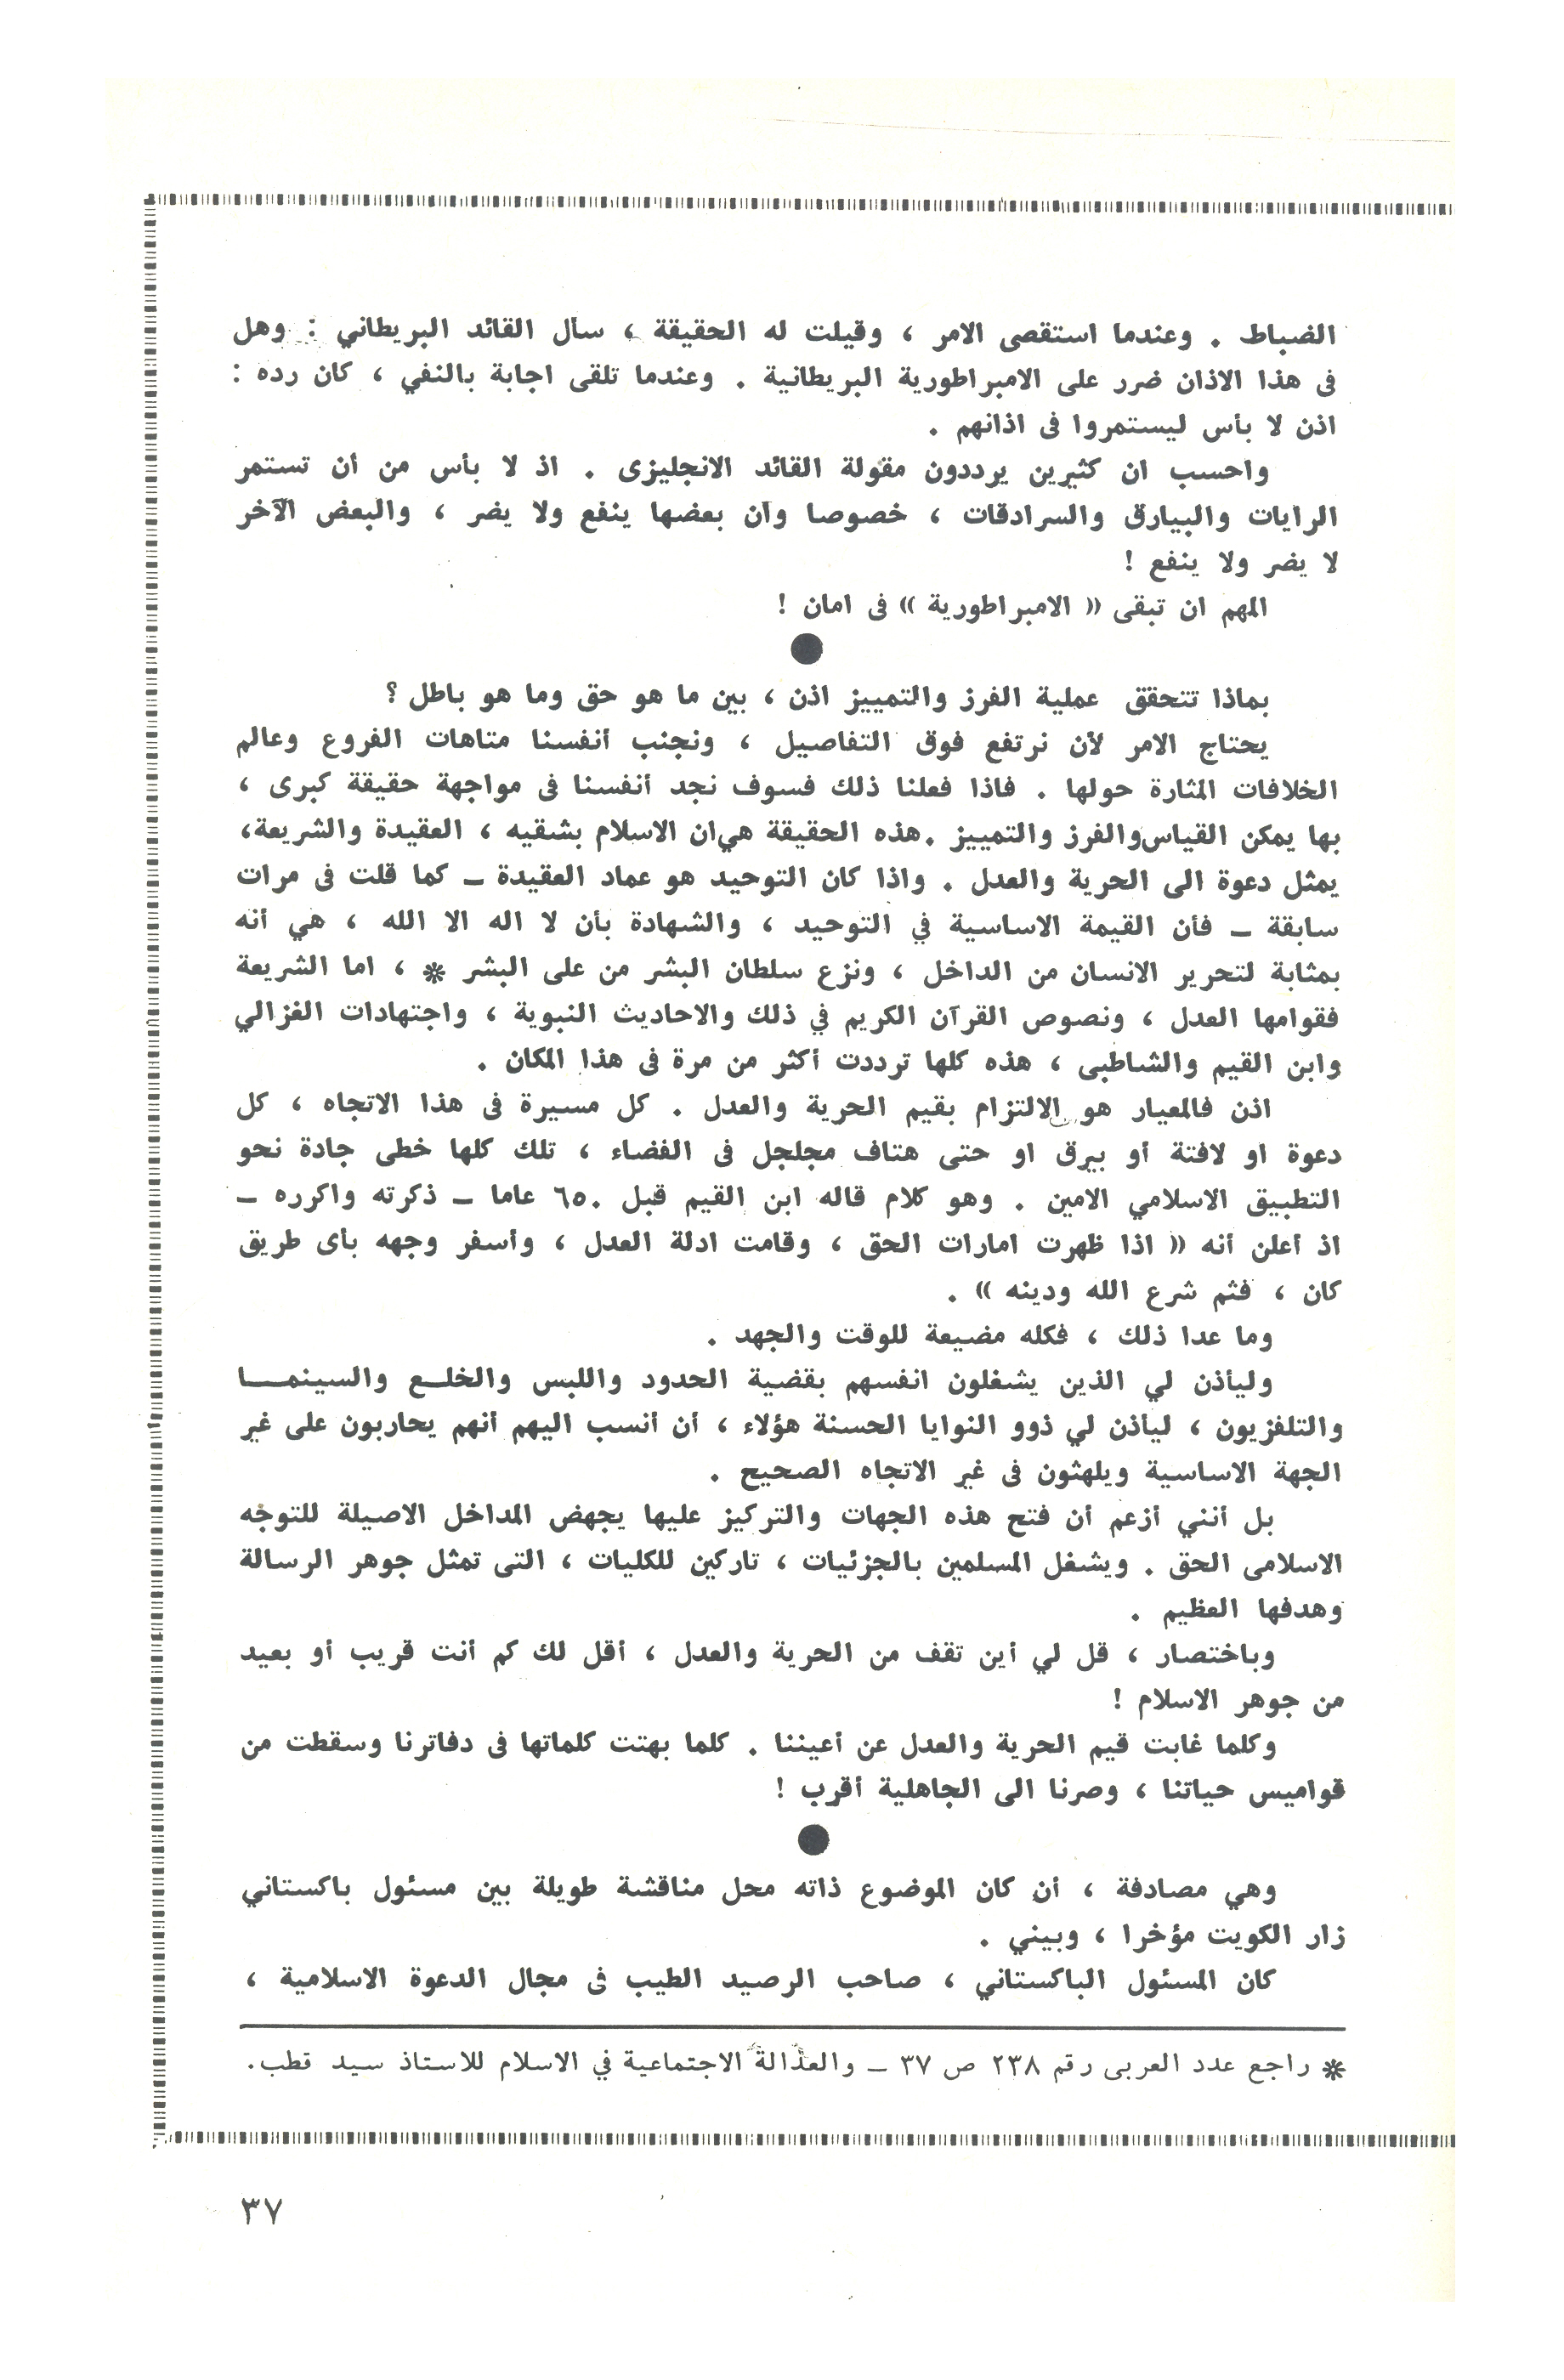 الضباط . وعندما استقصى الامر ، وقيلت له الحقيقة ، سأل القائد البريطاني : وهل
فى هذا الاذان ضرر على الامبراطورية البريطانية . وعندما تلقى اجابة بالنفي ، كان رده :
اذن لا بأس ليستمروا فى اذانهم .
واحسب ان كثيرين يرددون مقولة القائد الانجليزى . اذ لا بأس من أن تستمر
الرايات والبيارق والسرادقات ، خصوصا وأن بعضها ينفع ولا يضر ، والبعض الآخر
لا يضر ولا ينفع !
المهم ان تبقى « الامبراطورية » فى امان !
●
بماذا تتحقق عملية الفرز والتمييز اذن ، بين ما هو حق وما هو باطل ؟
يحتاج الامر لأن نرتفع فوق التفاصيل ، ونجنب أنفسنا متاهات الفروع وعالم
الخلافات المثارة حولها . فاذا فعلنا ذلك فسوف نجد أنفسنا فى مواجهة حقيقة كبرى ،
بها يمكن القياس والفرز والتمييز . هذه الحقيقة هي ان الاسلام بشقيه ، العقيدة والشريعة،
يمثل دعوة الى الحرية والعدل . واذا كان التوحيد هو عماد العقيدة ـ كما قلت فى مرات
سابقة ـ فأن القيمة الاساسية في التوحيد ، والشهادة بأن لا اله الا الله ، هي أنه
بمثابة لتحرير الانسان من الداخل ، ونزع سلطان البشر من على البشر * ، اما الشريعة
فقوامها العدل ، ونصوص القرآن الكريم في ذلك والاحاديث النبوية ، واجتهادات الغزالي
وابن القيم والشاطبى ، هذه كلها ترددت أكثر من مرة فى هذا المكان .
اذن فالمعيار هو الالتزام بقيم الحرية والعدل . كل مسيرة فى هذا الاتجاه ، كل
دعوة او لافتة أو بيرق او حتى هتاف مجلجل فى الفضاء ، تلك كلها خطى جادة نحو
التطبيق الاسلامي الامين . وهو كلام قاله ابن القيم قبل ٦٥٠ عاما ـ ذكرته واكرره ـ
اذ أعلن أنه « اذا ظهرت امارات الحق ، وقامت ادلة العدل ، وأسفر وجهه بأى طريق
كان ، فثم شرع الله ودينه » .
وما عدا ذلك ، فكله مضيعة للوقت والجهد .
وليأذن لي الذين يشغلون انفسهم بقضية الحدود واللبس والخلـع والسينمــا
والتلفزيون ، ليأذن لي ذوو النوايا الحسنة هؤلاء ، أن أنسب اليهم أنهم يحاربون على غير
الجهة الاساسية ويلهثون فى غير الاتجاه الصحيح .
بل أنني أزعم أن فتح هذه الجهات والتركيز عليها يجهض المداخل الاصيلة للتوجه
الاسلامى الحق . ويشغل المسلمين بالجزئيات ، تاركين للكليات ، التى تمثل جوهر الرسالة
وهدفها العظيم .
وباختصار ، قل لي أين تقف من الحرية والعدل ، أقل لك كم أنت قريب أو بعيد
من جوهر الاسلام !
وكلما غابت قيم الحرية والعدل عن أعيننا . كلما بهتت كلماتها فى دفاترنا وسقطت من
قواميس حياتنا ، وصرنا الى الجاهلية أقرب !
●
وهي مصادفة ، أن كان الموضوع ذاته محل مناقشة طويلة بين مسئول باكستاني
زار الكويت مؤخرا ، وبيني .
كان المسئول الباكستاني ، صاحب الرصيد الطيب فى مجال الدعوة الاسلامية ،
* راجع عدد العربى رقم ٢٣٨ ص ٣٧ ـ والعدالة الاجتماعية في الاسلام للاستاذ سيد قطب.
٣٧